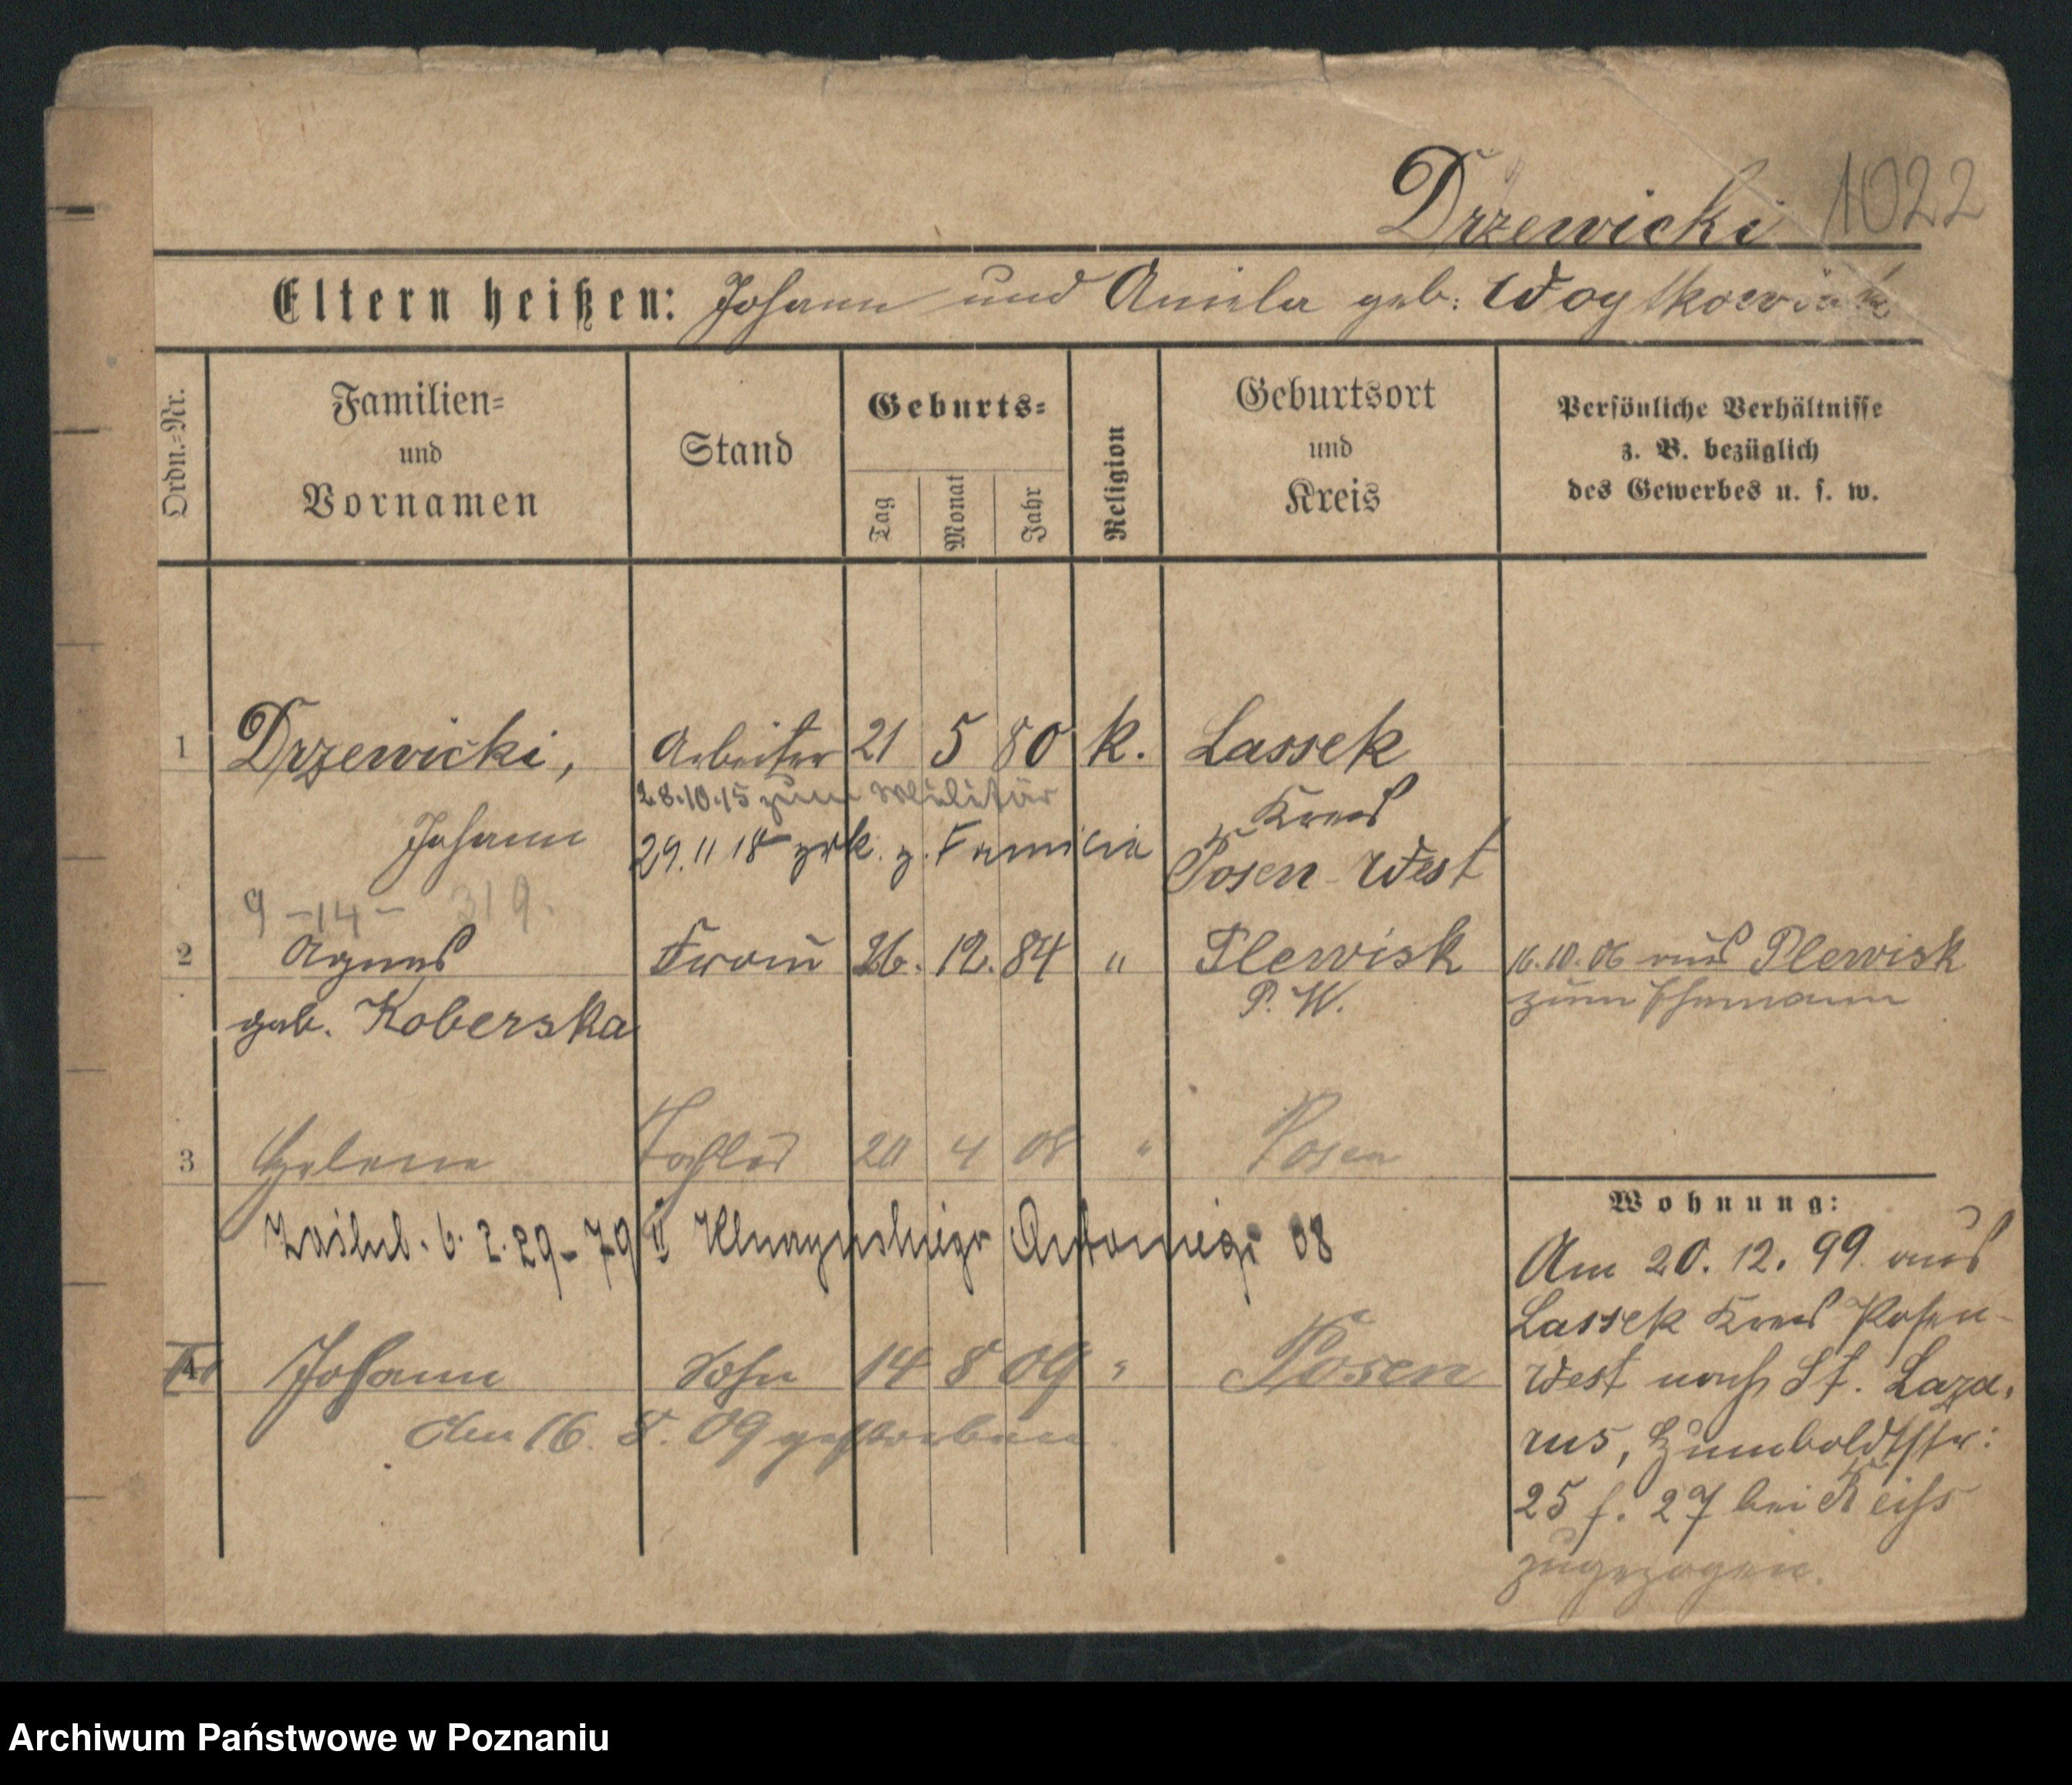 Drzewicki 1022
Eltern heißen: Johann und Aniela geb. Woytkowiak
Ordn.-Nr.
Familien- und Vornamen
Stand
Geburts-
Tag
Monat
Jahr
Religion
Geburtsort und Kreis
Persönliche Verhältnisse
z. B. bezüglich
des Gewerbes u. s. w.
1 Drzewicki, Arbeiter 21 5 80 k. Lassek
28.10.15 zum Militär
Kreis
Johann 29.11 18 zrk. z. Familie Posen-West
9 -14- 319.
2 Agnes Frau 26. 12. 84 " Plewisk 16.10.06 aus Plewisk
geb. Koberska P. W. zum Ehemann
3 Helene Tochter 20 4 08 " Posen
Zaślub. 6. 2. 29 - 79 II Antoniego 08
4 Johann Sohn 14 8 09 " Posen
den 16. 8. 09 gestorben
Wohnung:
Am 20. 12. 99 aus
Lassek Kreis Posen-
West nach St. Laza-
rus, Humboldtstr:
25 f. 27 bei Reiss
zugezogen.
Archiwum Państwowe w Poznaniu